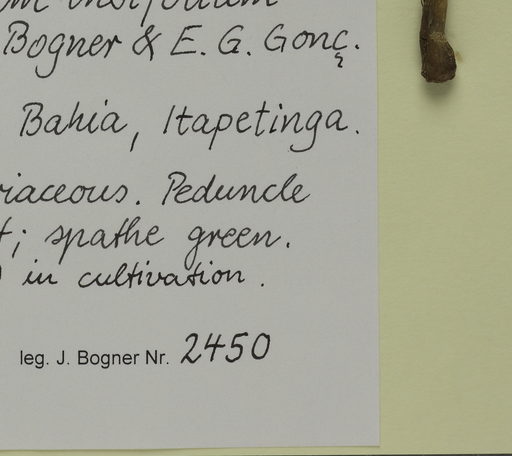 Bogner & E. G. Gonç.
Bahia, Itapetinga.
riaceous. Peduncle
; spathe green.
in cultivation.
leg. J. Bogner Nr. 2450